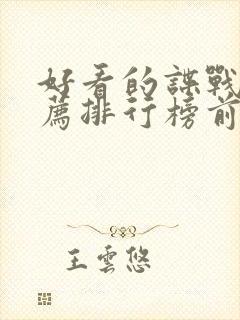 好看的諜戰
薦排行榜前
王雲悠